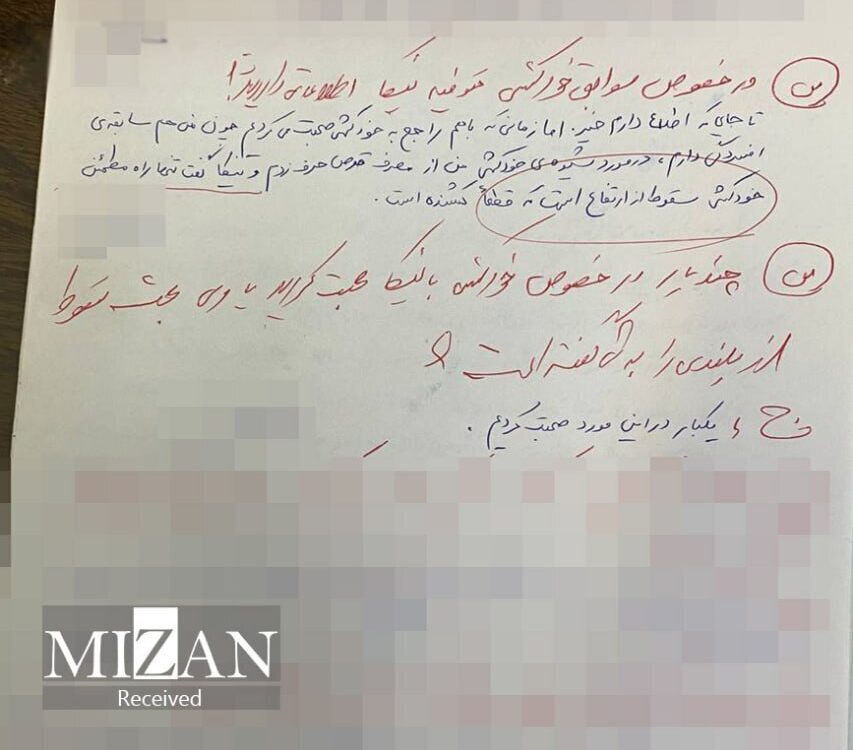 س در خصوص سوابق خودکشی متوفیه نیکا اطلاعاتی دارید؟
تا جایی که اطلاع دارم خیر. اما زمانی که باهم راجع به خودکشی صحبت می‌کردیم چون من هم سابقه‌ی
افسردگی دارم، در مورد شیوه‌ی خودکشی من از مصرف قرص حرف زدم و نیکا گفت تنها راه مطمئن
خودکشی سقوط از ارتفاع است که قطعاً کشنده است.
س چند بار در خصوص خودکشی با نیکا صحبت کردید یا وی بحث سقوط
از بلندی را به گفته است؟
ج یکبار در این مورد صحبت کردیم.
MIZAN
Received